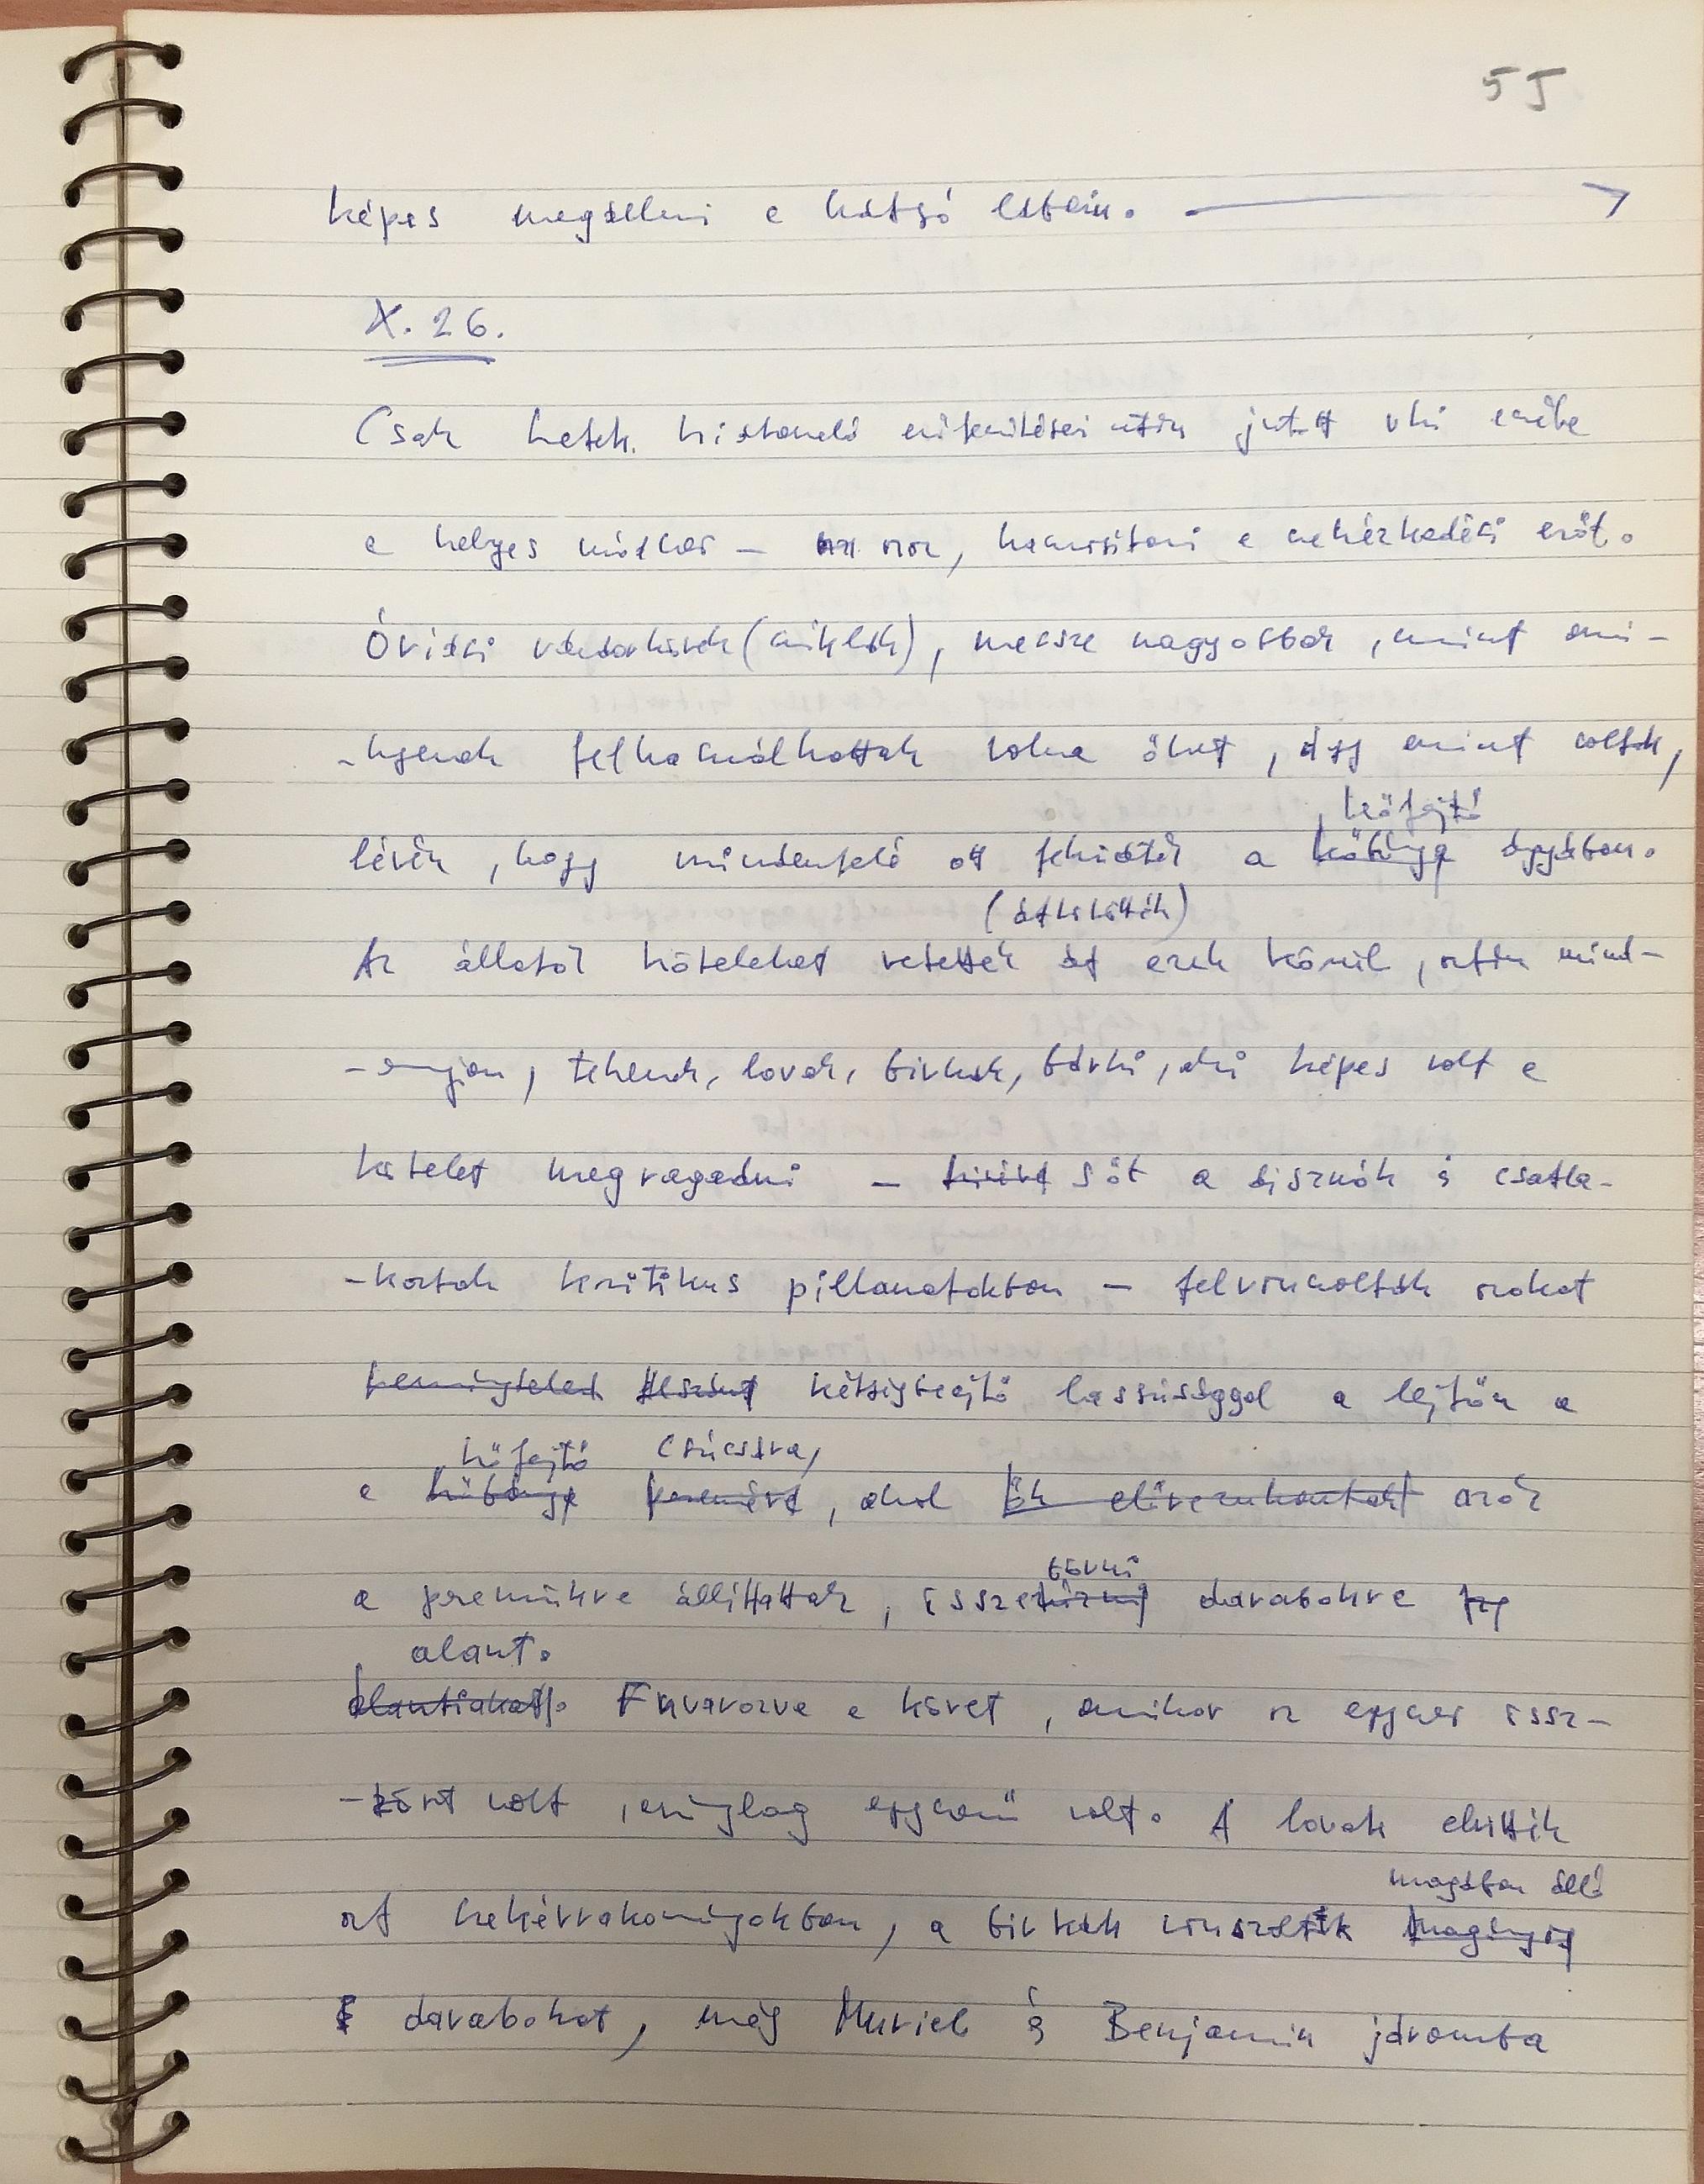 55
képes megállni a hátsó lábain. >
X. 26.
Csak hetek kistonelő erőfeszítései után jutott vki eszébe
a helyes módszer – az, hasznosítani a nehézkedési erőt.
Óriási vándorkövek (sziklák), messze nagyobbak, mint ami-
-lyenek felhasználhattak volna őket, úgy mint voltak,
kőfejtő
lévén, hogy mindenfelé ott feküdtek a kőbánya ágyában.
(átkötötték)
Az állatok köteleket vetettek át ezek körül, aztán mind-
-annyian, tehenek, lovak, birkák, bárki, aki képes volt a
kötelet megragadni – sőt a disznók is csatla-
-koztak kritikus pillanatokban – felvonszolták azokat
kétségbeejtő lassúsággal a lejtőn a
kőfejtő csúcsára,
a kőbánya peremére, ahol ők azok
törni
a peremükre állíttattak, össze darabokra
alant.
alantiakat. Fuvarozva a követ, amikor az egyszer össz-
-tört volt, aránylag egyszerű volt. A lovak elvitték
magában álló
azt szekérrakományokban, a birkák vonszolták magányos
darabokat, még Muriel és Benjamin járomba